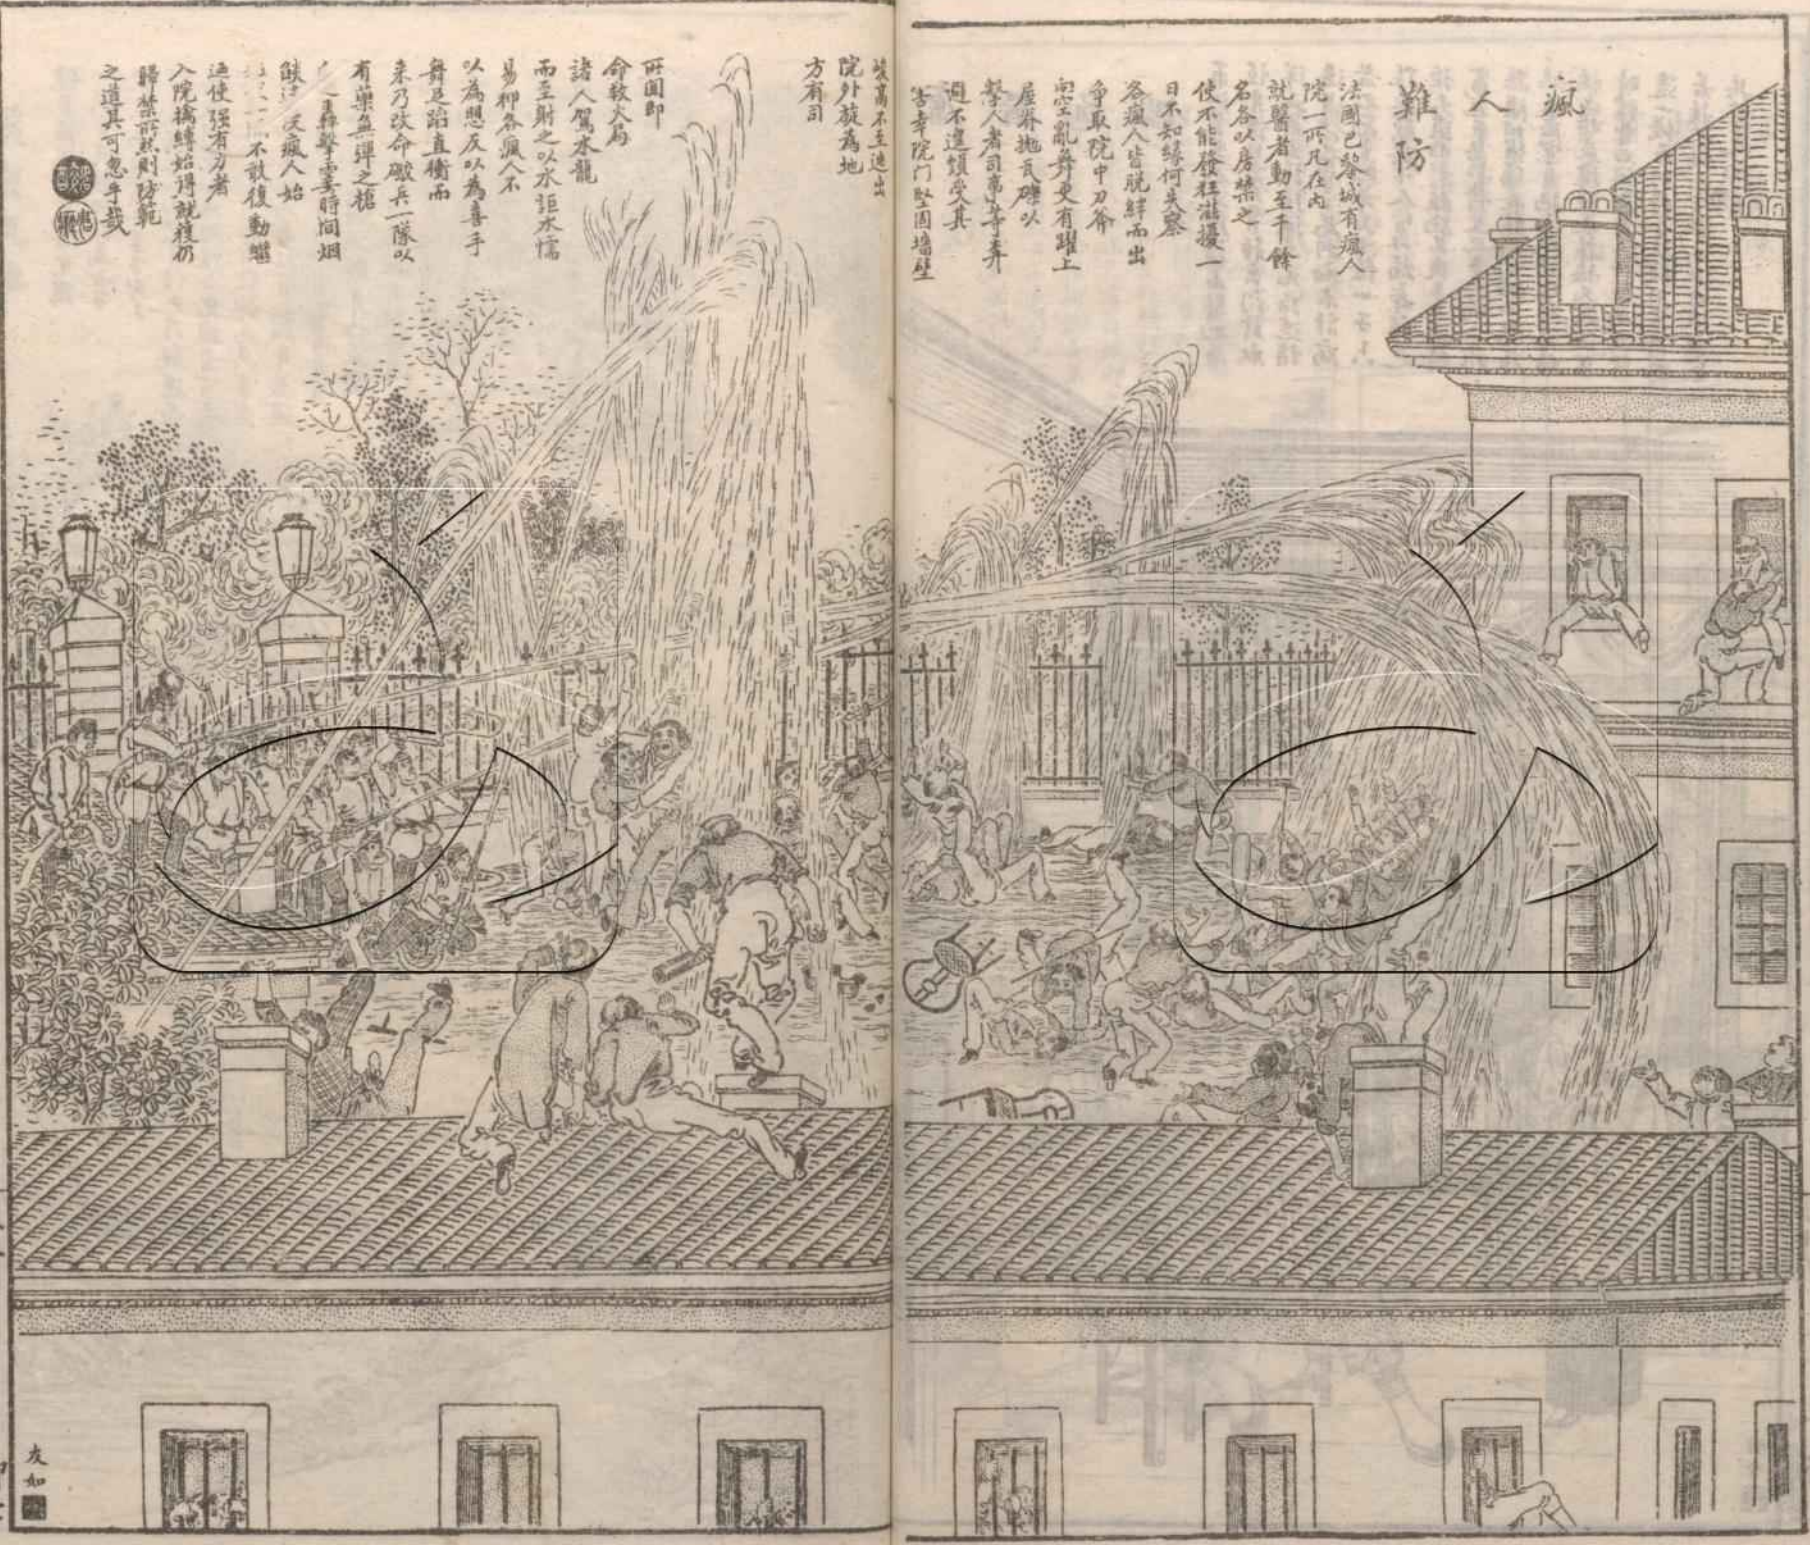 瘋人
難防
法國巴黎城有瘋人
院一所凡在內
就醫者動至千餘
名各以房禁之
使不能發狂滋擾一
日不知緣何失察
各瘋人皆脫絆而出
爭取院中刀斧
向空亂舞更有躍上
屋脊拋瓦礫以
擊人者司事等弄
避不遑頻受其
害幸院門堅固墻壁
峻高不至逃出
院外旋為地
方有司
所聞即
命救火局
諸人駕水龍
而至射之以水詎水懦
易狎各瘋人不
以為懼反以為喜手
舞足蹈直衝而
來乃改命礮兵一隊以
有藥無彈之槍
轟擊霎時間烟
瘋人始
不敢復動繼
遂使强有力者
入院擒縛始得就獲仍
歸禁所然則防範
之道其可忽乎哉
友如